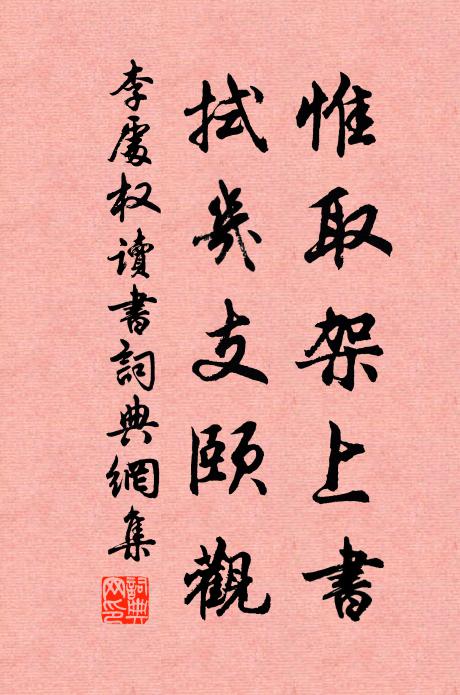 惟取架上書
拭几支頤觀
李處权讀書詞典網集
詞典網印